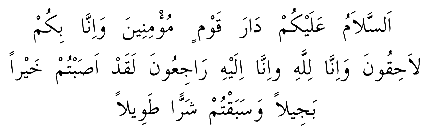 اَلسَّلاَمُ عَلَيْكُمْ دَارَ قَوْمٍ مُؤْمِنِينَ وَاِنَّا بِكُمْ
لاَحِقُونَ وَاِنَّا لِلَّهِ وِانَّا اِلَيْهِ رَاجِعُونَ لَقَدْ اَصَبْتُمْ خَيْراً
بَجِيلاً وَسَبَقْتُمْ شَرًّا طَوِيلاً